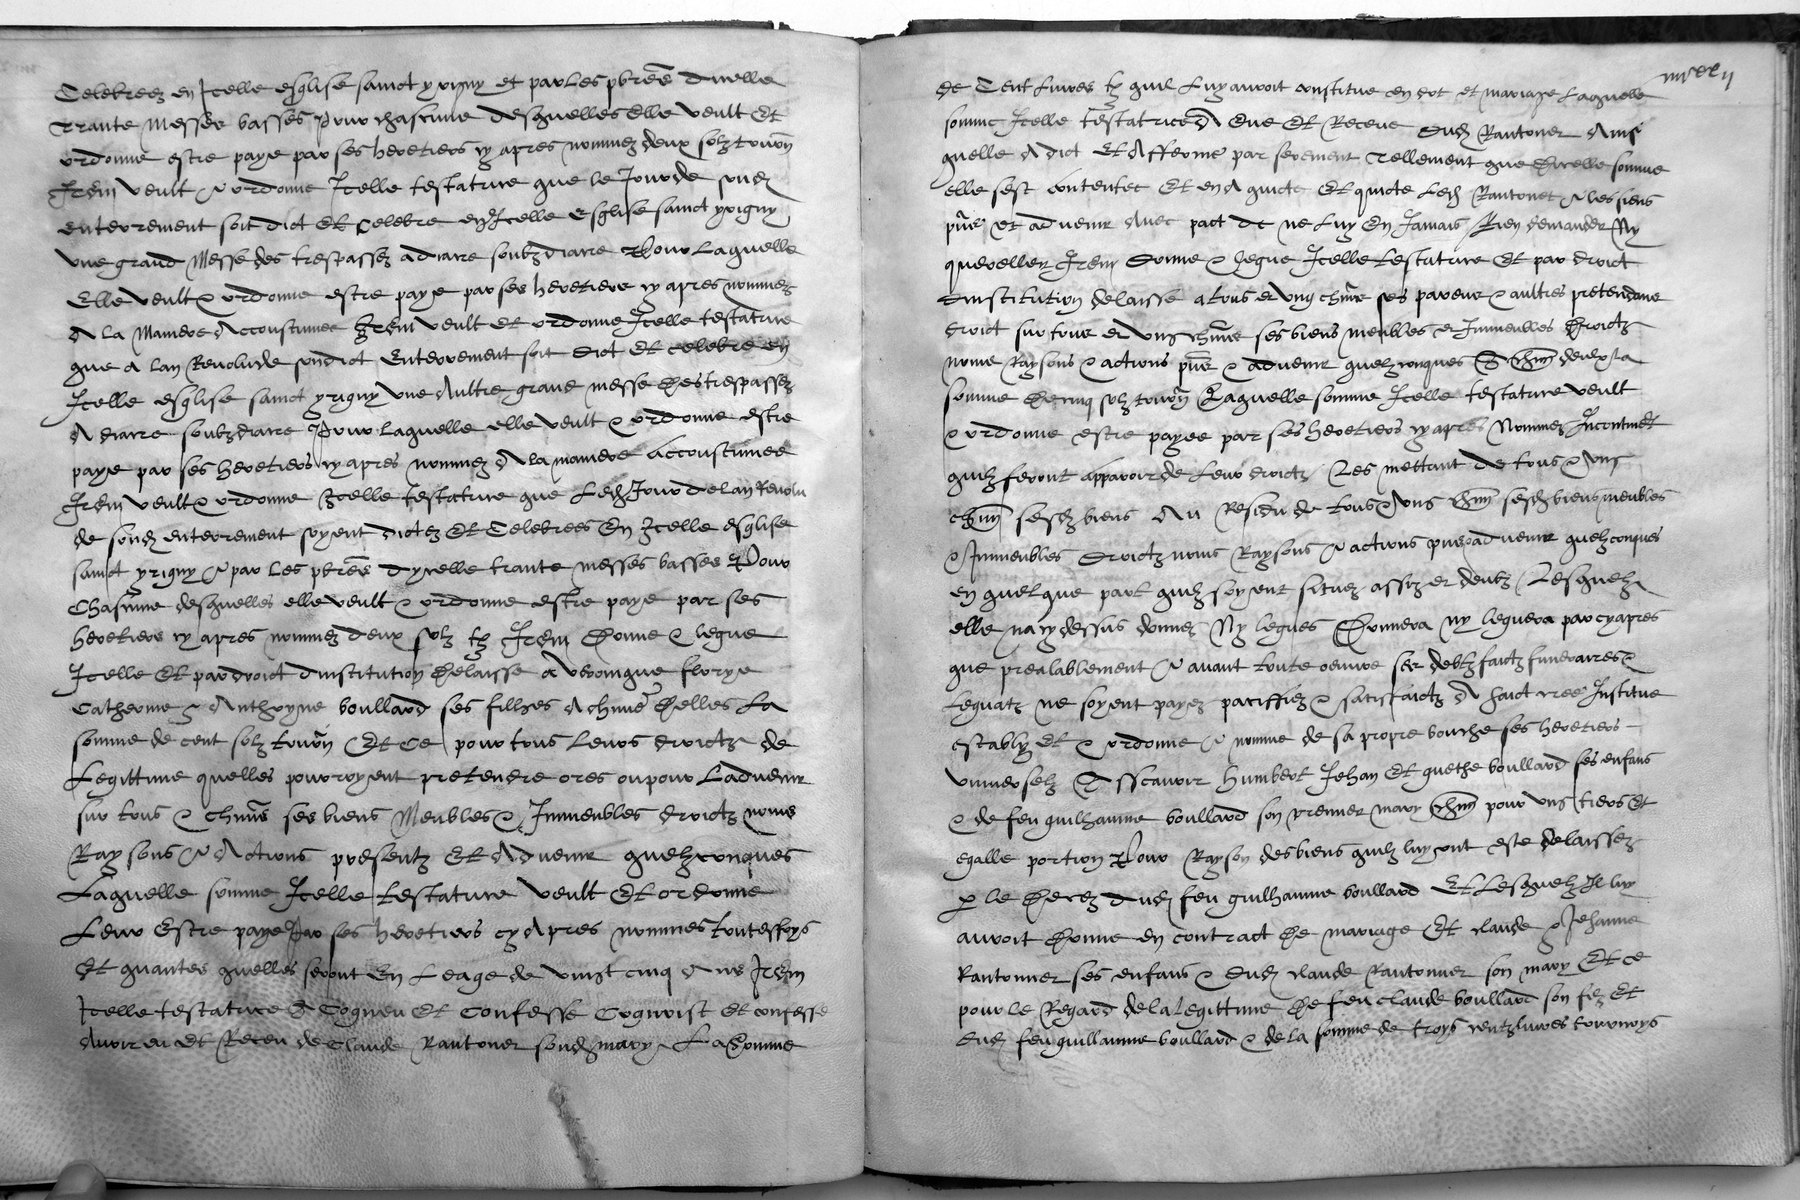 Celebreez en Icelle esglise sainct yrigny et par les pbrēs dicelle
Trante Messes basses Pour chascune desquelles Elle veult Et
ordonne estre paye par ses heretiers cy apres nommez deux solz tourn
Item veult & ordonne Icelle testatrice que le Jour de sond
enterrement soit dict Et Celebre en Icelle Esglise sainct yrigny
une grand Messe des trespassez a diacre soubzdiacre Pour Laquelle
Elle veult & ordonne estre paye par ses heretiers cy apres nommez
A la Maniere Accoustumee Item veult Et ordonne Icelle testatrice
que a lan Revolu de sondict Enterrement soit Dict Et celebre en
Icelle esglise sainct yrigny une Aultre grand messe des trespassez
A diacre soubzdiacre Pour laquelle elle veult & ordonne estre
paye par ses heretiers cy apres nommez A la maniere Accoustumee
Item veult & ordonne Icelle testatrice que Led Jour de lan Revolu
de sond enterrement soyent dictz Et Celebrees En Icelle esglise
sainct yrigny & par les pbrēs dycelle trante messes basses Pour
Chascune desquelles elle veult & ordonne estre paye par ses
heretiers cy apres nommez deux solz tz Item Donne & legue
Icelle Et par droict dinstitution Delaisse a veronique florye
Catherine & Anthoyne boullard ses filhes A chune Delles La
somme de cent solz tourn Et Ce pour tous leurs droictz de
Legittime quelles pourroyent pretendre ores ou pour Ladvenir
sur tous & chūns ses biens Meubles & Immeubles droictz noms
Raysons & Actions presentz Et Advenir quelzconques
Laquelle somme Icelle testatrice veult Et ordonne
Leur Estre paye Par ses heretiers cy Apres nommes touteffoys
Et quantes quelles seront En Leage de vingt cinq Ans Item
Icelle testatrice A Cogneu Et Confesse Cognoist Et confesse
Avoir eu Et Receu de Claude Rantonet sond mary La somme
de Cent Livres tz quil Luy avoit constitue en dot et mariage Laquelle
somme Icelle testatrice A Eue Et Receue dud Rantonet Ainsi
quelle A dict Et Afferme par serement Tellement que Dicelle somme
elle sest contentee Et en A quicte Et quicte Led Rantonet & les siens
pūs et advenir Avec pact de ne Luy En Jamais Rien demander Ny
quereller Item Donne & legue Icelle testatrice Et par droict
dinstitution delaisse a tous et ung chūn ses parens & aultres pretendans
droict sur tous et ung chūns ses biens meubles et Immeubles Droictz
noms Raysons & actions pūs & advenir quelzconques A chūn deulx La
somme De cinq solz tourn Laquelle somme Icelle testatrice veult
& ordonne estre payee par ses heretiers cy apres Nommez Incontinent
quilz feront apparoir de leurs droictz Les mettant de tous & ung
chūn sesd biens Au Residu de tous & ungs chūn sesd biens meubles
& Immeubles Droictz noms Raysons & actions pūs advenir quelzconques
en quelque part quilz soyent situez assiz et deubz Lesquelz
elle na cy dessus donnez Ny legues Donnera ny leguera par cy apres
que prealablement & avant toute oeuvre ses debtz faictz funeraires &
Legatz ne soyent payez paciffiez & satisfaictz A faict cree Institue
estably Et & ordonne & nomme de sa propre bouche ses heretiers
universelz A scavoir Humbert Jehan Et guethe boullard ses enfans
& de feu guilhaume boullard son premier mary chūn pour ung tiers Et
egalle portion Pour Rayson des biens quilz luy ont este delaissez
p le Decez dud feu guilhaume boullard Et Lesquelz Il luy
avoit Donne en contract De mariage Et claude & Jehanne
Rantonnet ses enfans & dud claude Rantonnet son mary Et ce
pour le Regard de la legittime De feu claude boullard son filz Et
dud feu guillaume boullard & de la somme de troys centz livres tournoys